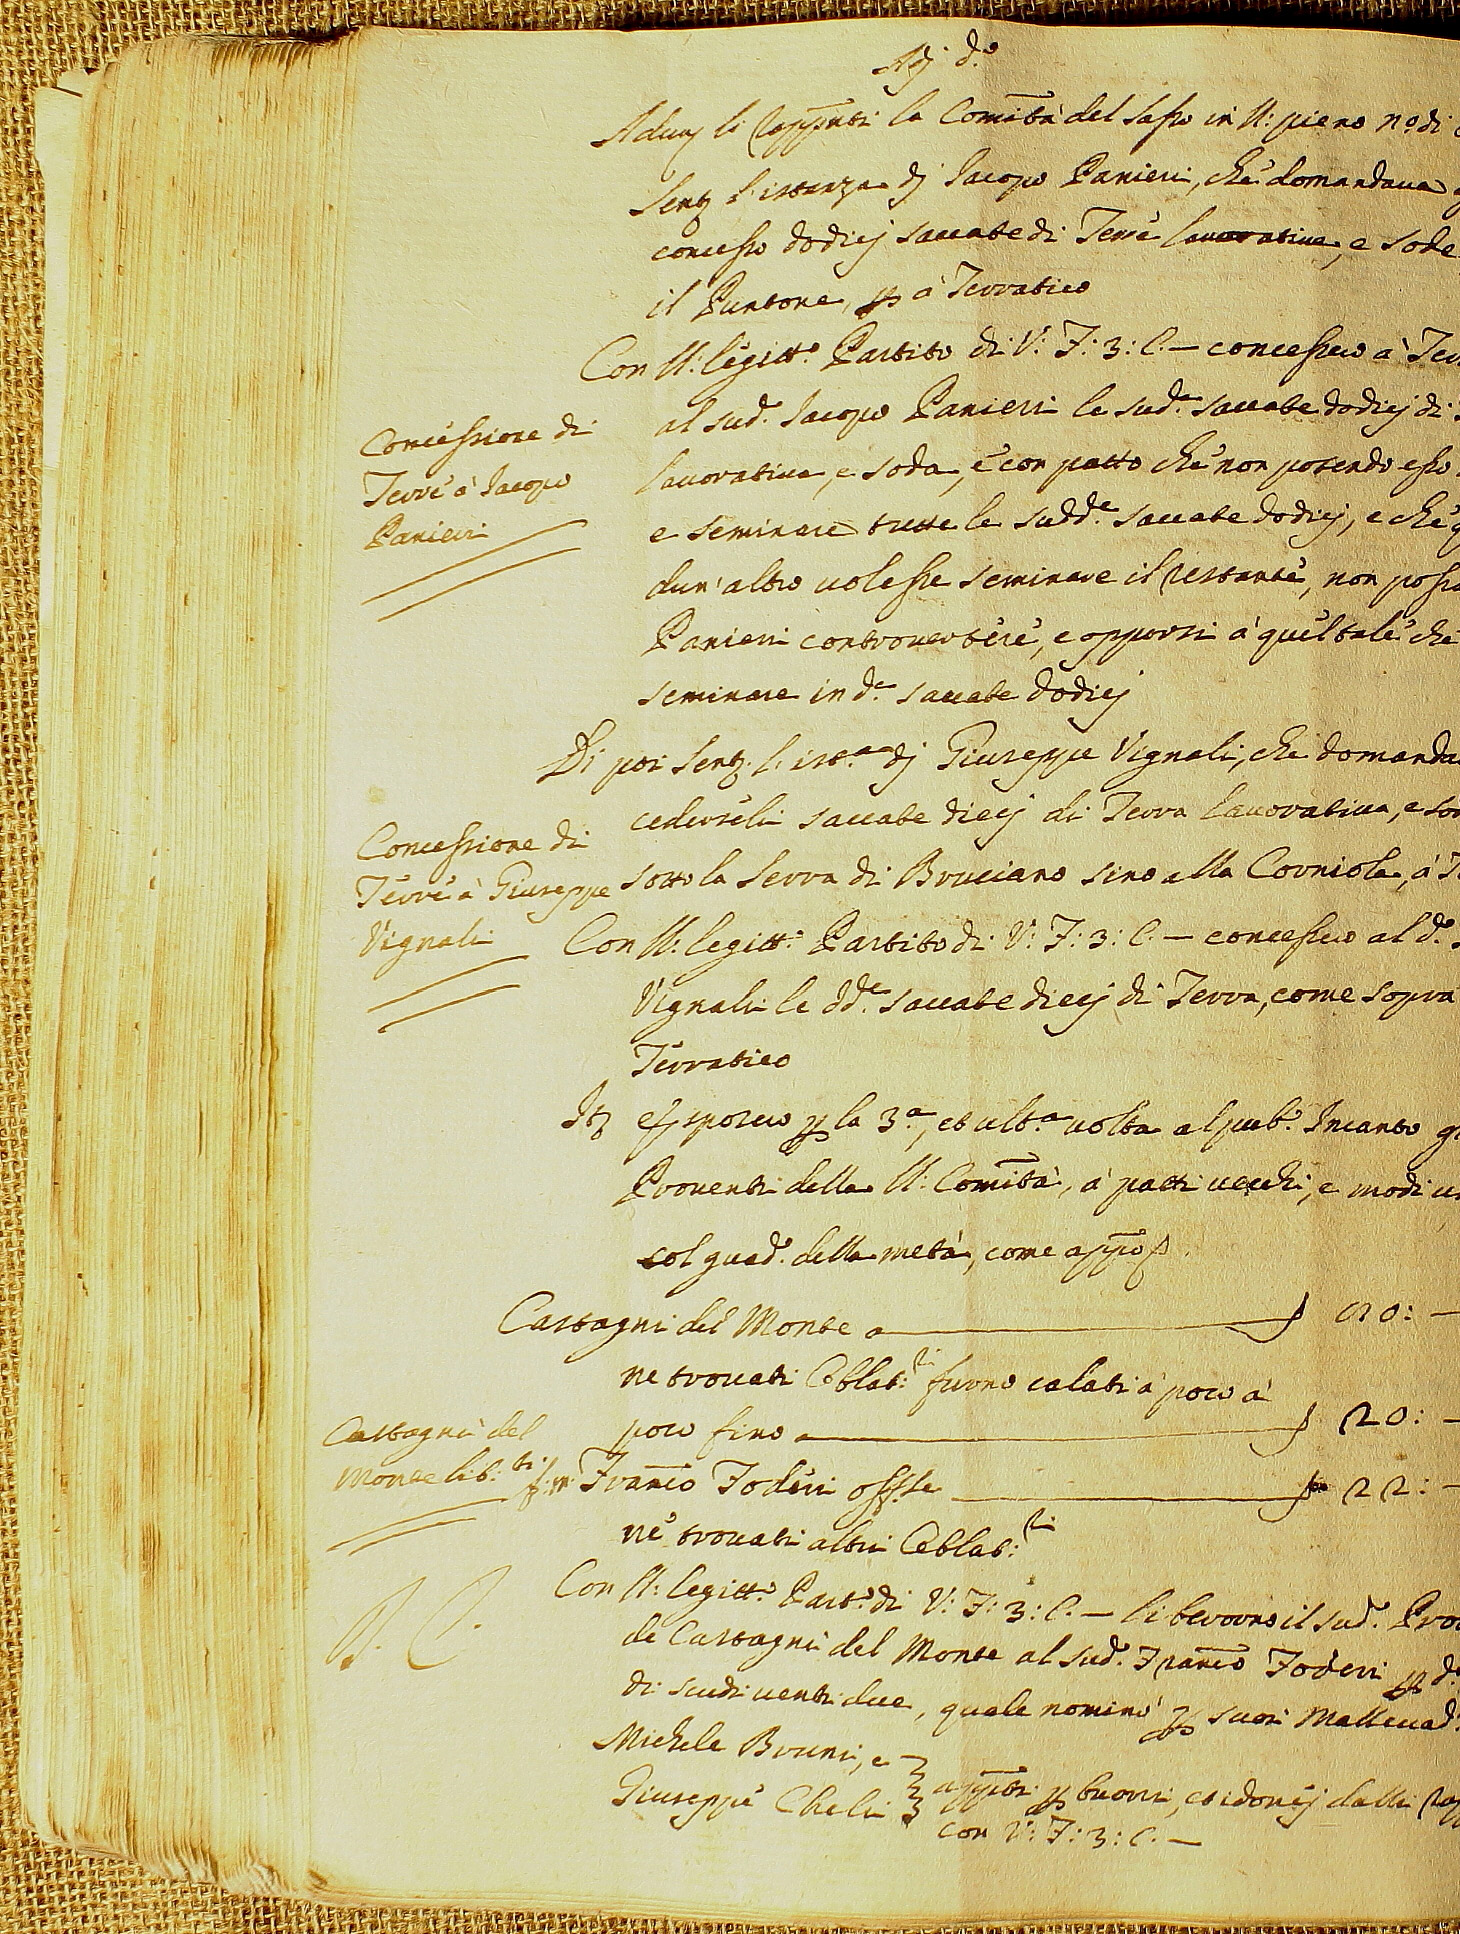 Adj d.o
Adunj li Rappnti la Comità del Sasso in N: pieno n.o di
Sentj l'istanza dj Iacopo Panieri, che domandava
concesso dodicj saccate di Terre lavorative, e sode
il Puntone, p à Terratico
Con N: legitt.o Partito di V: F: 3: C: — concessero à
al sud. Iacopo Panieri le sud.e saccate dodicj di
lavorativa, e soda, e con patto che non potendo esso
e seminare tutte le sudd.e saccate dodicj, e che
dun' altro volesse seminare il restante, non possa
Panieri controvertere, e opporsi à quel tale che
seminare in d.e saccate dodicj
Concessione di
Terre à Iacopo
Panieri
Di poi Sent. l'ist.a dj Giuseppe Vignali, che
cederseli saccate diecj di Terra lavorativa, e
sotto la Serra di Bruciano sino alla Corniola, à
Con N: legitt.o Partito di V: F: 3: C: — concessero al d.o
Vignali le dd.e saccate diecj di Terra, come sopra
Terratico
Concessione di
Terre à Giuseppe
Vignali
It esposero p la 3.a, et ult.a volta al pub.o Incanto
Proventi della N: Comità, à patti vecchi, e modi
col guad. della metà, come app.o
Castagni del Monte a — 20: —
ne trovati Oblat:ri furno calati à poco à
poco fino a — 20: —
Franco Foderi offse — 22: —
ne trovati altri Oblat:ri
Castagni del
Monte lib:ti
Con N: legitt.o Part.o di V: F: 3: C: — liberorno il sud.o
de Castagni del Monte al sud.o Franco Foderi p d.
di scudi venti due, quale nominò p suoi Mallevad.
Michele Bruni, e
Giuseppe Cheli
appti p buoni, et idonej dalli
con V: F: 3: C: —